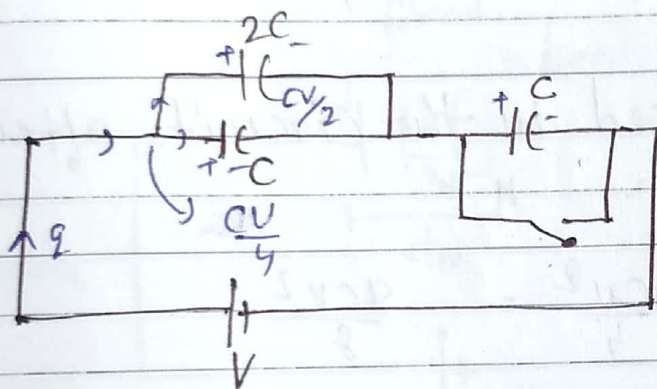 2C
+ -
CV/2
C
+ -
+ - C
CV/4
q
V